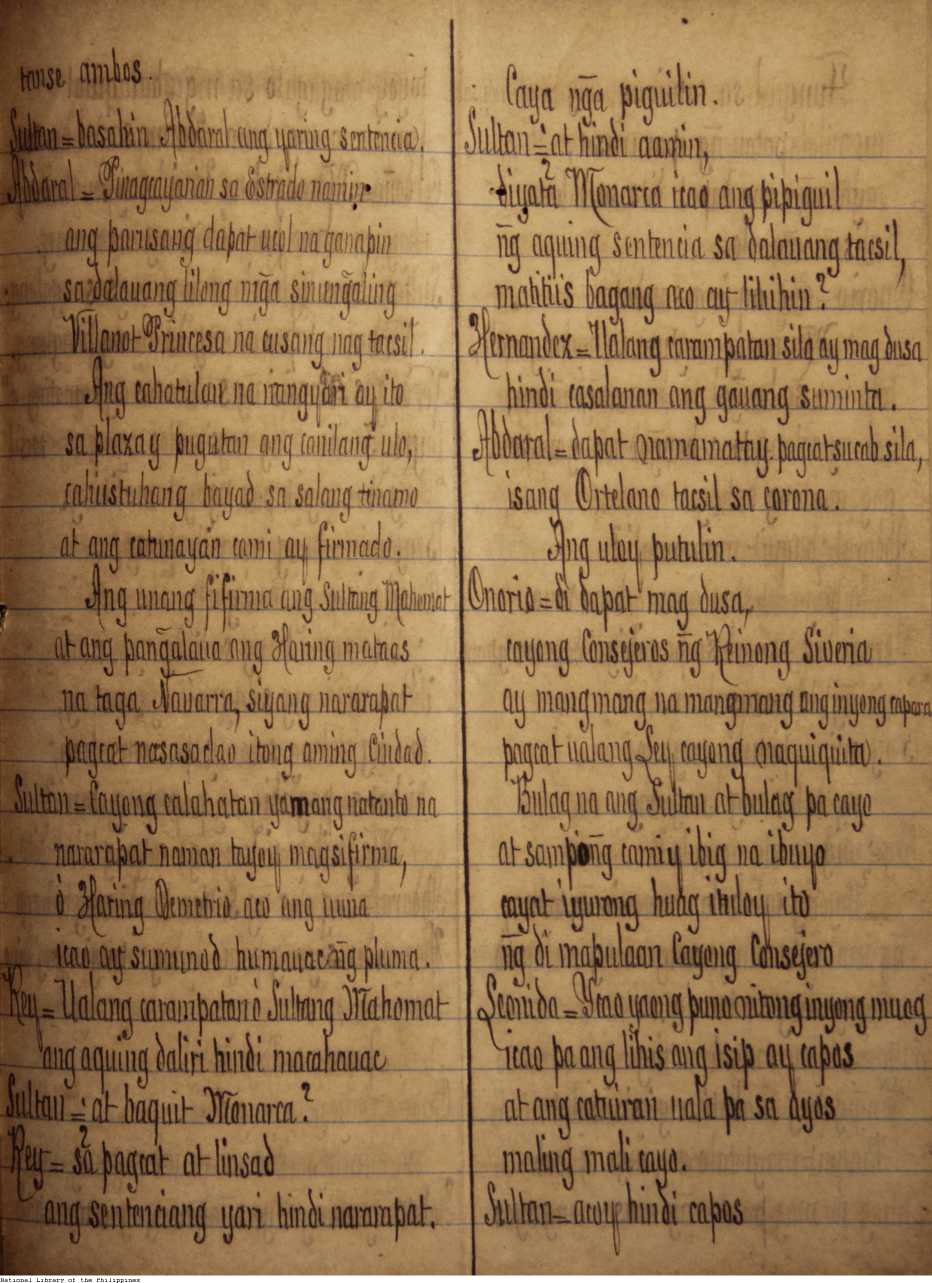 tanse ambos.
Sultan = basahin Abdaral ang yaring sentencia.
Abdaral = Pinagcayarian sa Estrado namin
ang parusang dapat ucol na ganapin
sa dalauang lilong mḡa sinungaling
Villanot Princesa na cusang nag tacsil.
Ang cahatulan na nangyari ay ito
sa plazay pugutan ang canilang ulo,
cahustuhang bayad sa salang tinamo
at ang catunayan cami ay firmado.
Ang unang fifirma ang Sultang Mahomat
at ang pangalaua ang Haring mataas
na taga Navarra, siyang nararapat
pagcat nasasaclao itong aming Ciudad.
Sultan = Cayong calahatan yamang natanto na
nararapat naman tayoy magsifirma,
ò Haring Demetrio aco ang uuna
icao ay sumunod humauac ñg pluma.
Rey = Ualang carampatan ò Sultang Mahomat
ang aquing daliri hindi macahauac
Sultan = at baquit Monarca?
Rey = sa pagcat at linsad
ang sentenciang yari hindi nararapat.
Caya nḡa piguilin.
Sultan = at hindi aamin,
diyata? Monarca icao ang pipiguil
ñg aquing sentencia sa dalauang tacsil,
matitiis bagang aco ay lilihin?
Hernandez = Ualang carampatan sila ay mag dusa
hindi casalanan ang gauang suminta.
Abdaral = dapat mamamatay pagcat sucab sila,
isang Ortelano tacsil sa corona.
Ang uloy putulin.
Onorio = di dapat mag dusa,
cayong Consejeros ñg Reinong Siveria
ay mangmang na mangmang ang inyong capara
pagcat ualang Ley cayong naquiquita.
Bulag na ang Sultan at bulag pa cayo
at sampoñg camiy ibig na ibuyo
cayat iyurong huag ituloy ito
ñg di mapulaan Cayong Consejero
Leonida = Ycao yaong puno nitong inyong muog
icao pa ang lihis ang isip ay capos
at ang catuiran uala pa sa ayos
maling mali cayo.
Sultan = acoy hindi capos
National Library of the Philippines